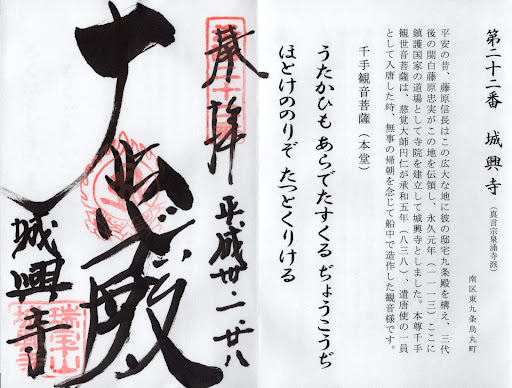 第二十二番 城興寺(真言宗泉涌寺派)
南区東九条烏丸町
平安の昔、藤原信長はこの広大な地に彼の邸宅九条殿を構え、三代
後の関白藤原忠実がこの地を伝領し、永久元年(一一一三)ここに
鎮護国家の道場として寺院を建立して城興寺としました。本尊千手
観世音菩薩は、慈覚大師円仁が承和五年(八三八)、遣唐使の一員
として入唐した時、無事の帰朝を念じて船中で造作した観音様です。
千手観音菩薩(本堂)
うたかひも あらでたすくる ぢょうこうぢ
ほとけののりぞ たつとくりける
奉拝 平成卅・一・廿八
殿
城興寺